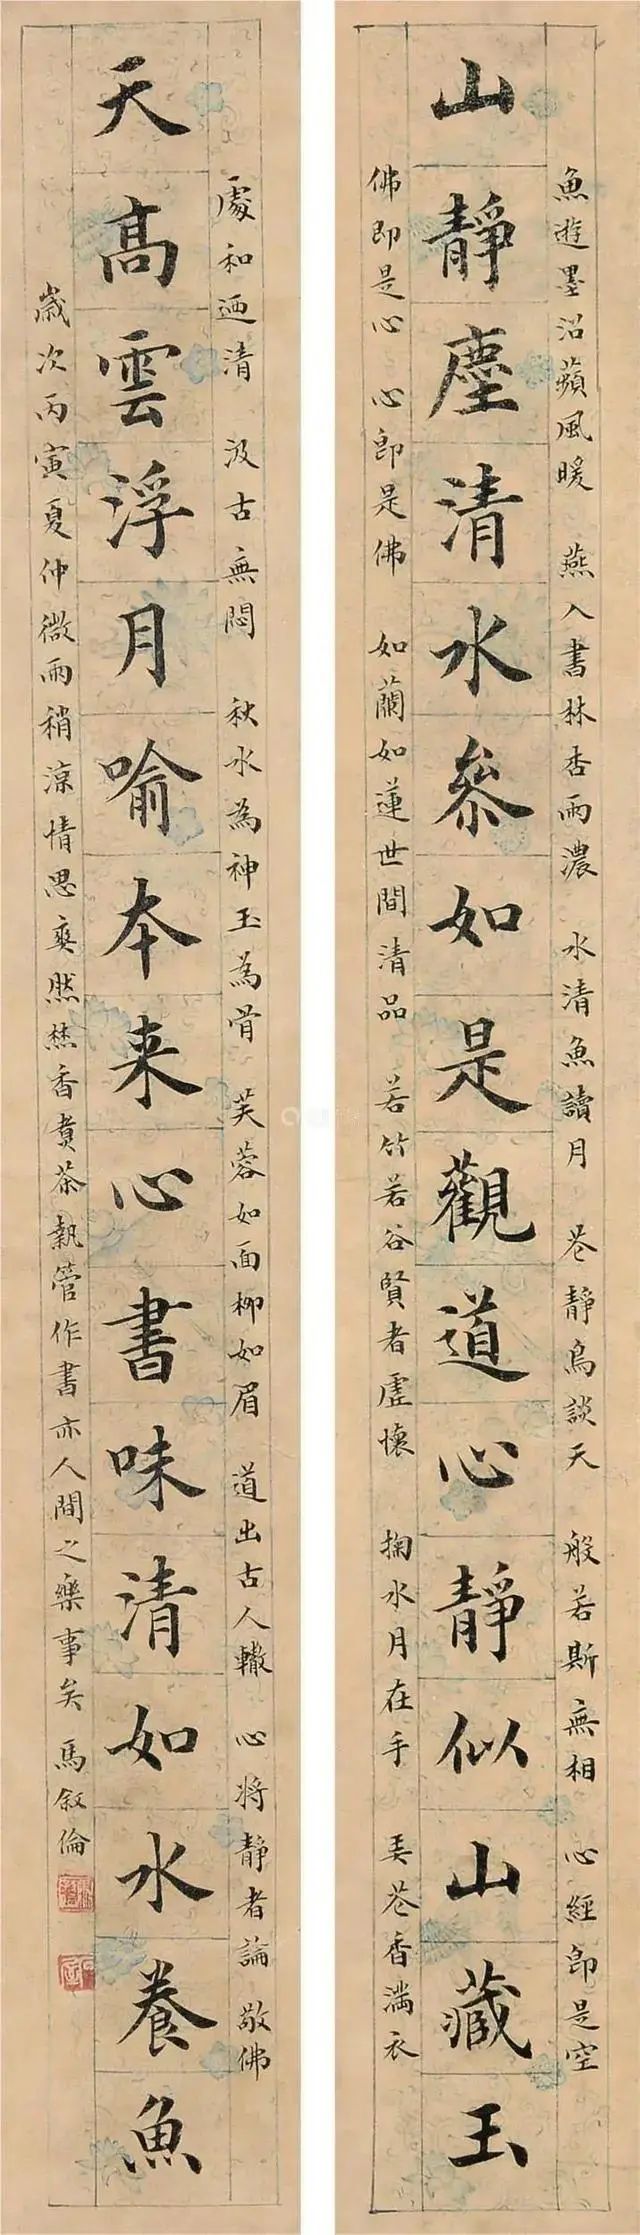 魚遊墨沼蘋風暖 燕入書林杏雨濃 水清魚讀月 花靜鳥談天 般若斯無相 心經即是空
山靜塵清水參如是觀道心靜似山藏玉
佛即是心 心即是佛 如蘭如蓮世間清品 若竹若谷賢者虛懷 掬水月在手 弄花香滿衣
處和迺清 汲古無悶 秋水為神玉為骨 芙蓉如面柳如眉 道出古人轍 心將靜者論 敬佛
天高雲浮月喻本来心書味清如水養魚
歲次丙寅夏仲微雨稍涼情思爽然焚香煑茶執管作書亦人間之樂事矣 馬叙倫